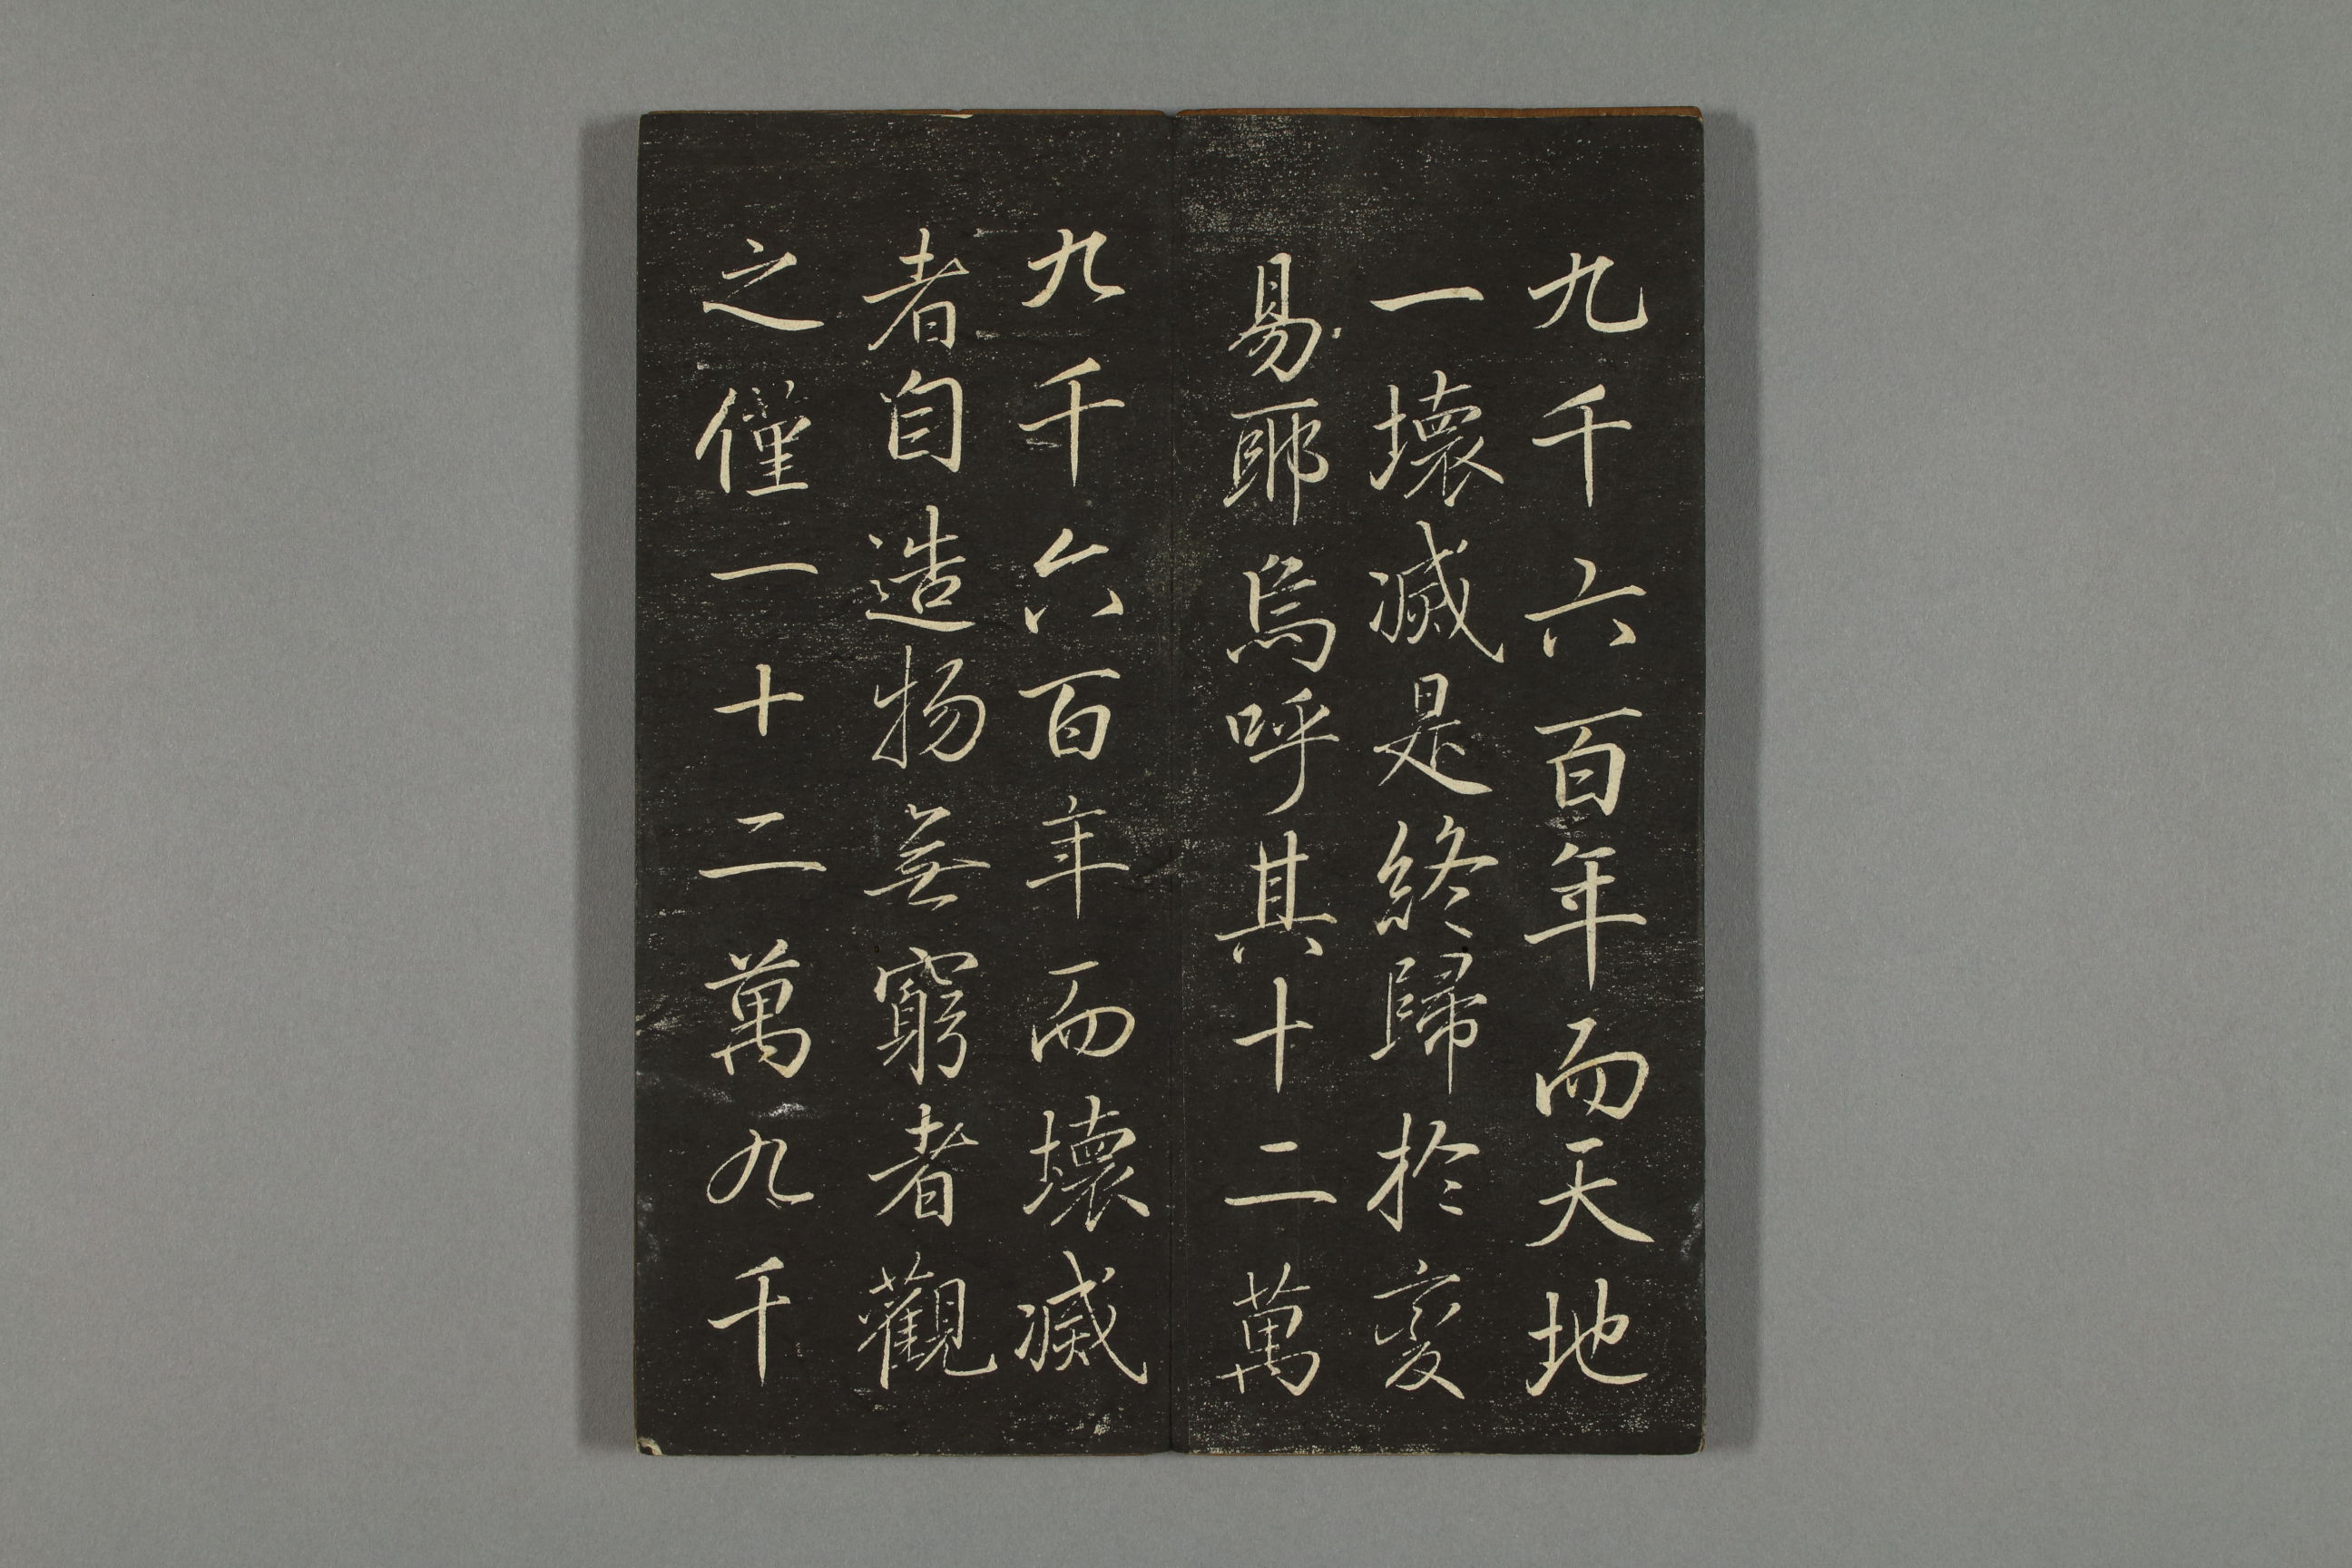 九千六百年而天地
一壞滅是終歸於變
易耶烏呼其十二萬
九千六百年而壞滅
者自造物無窮者觀
之僅一十二萬九千